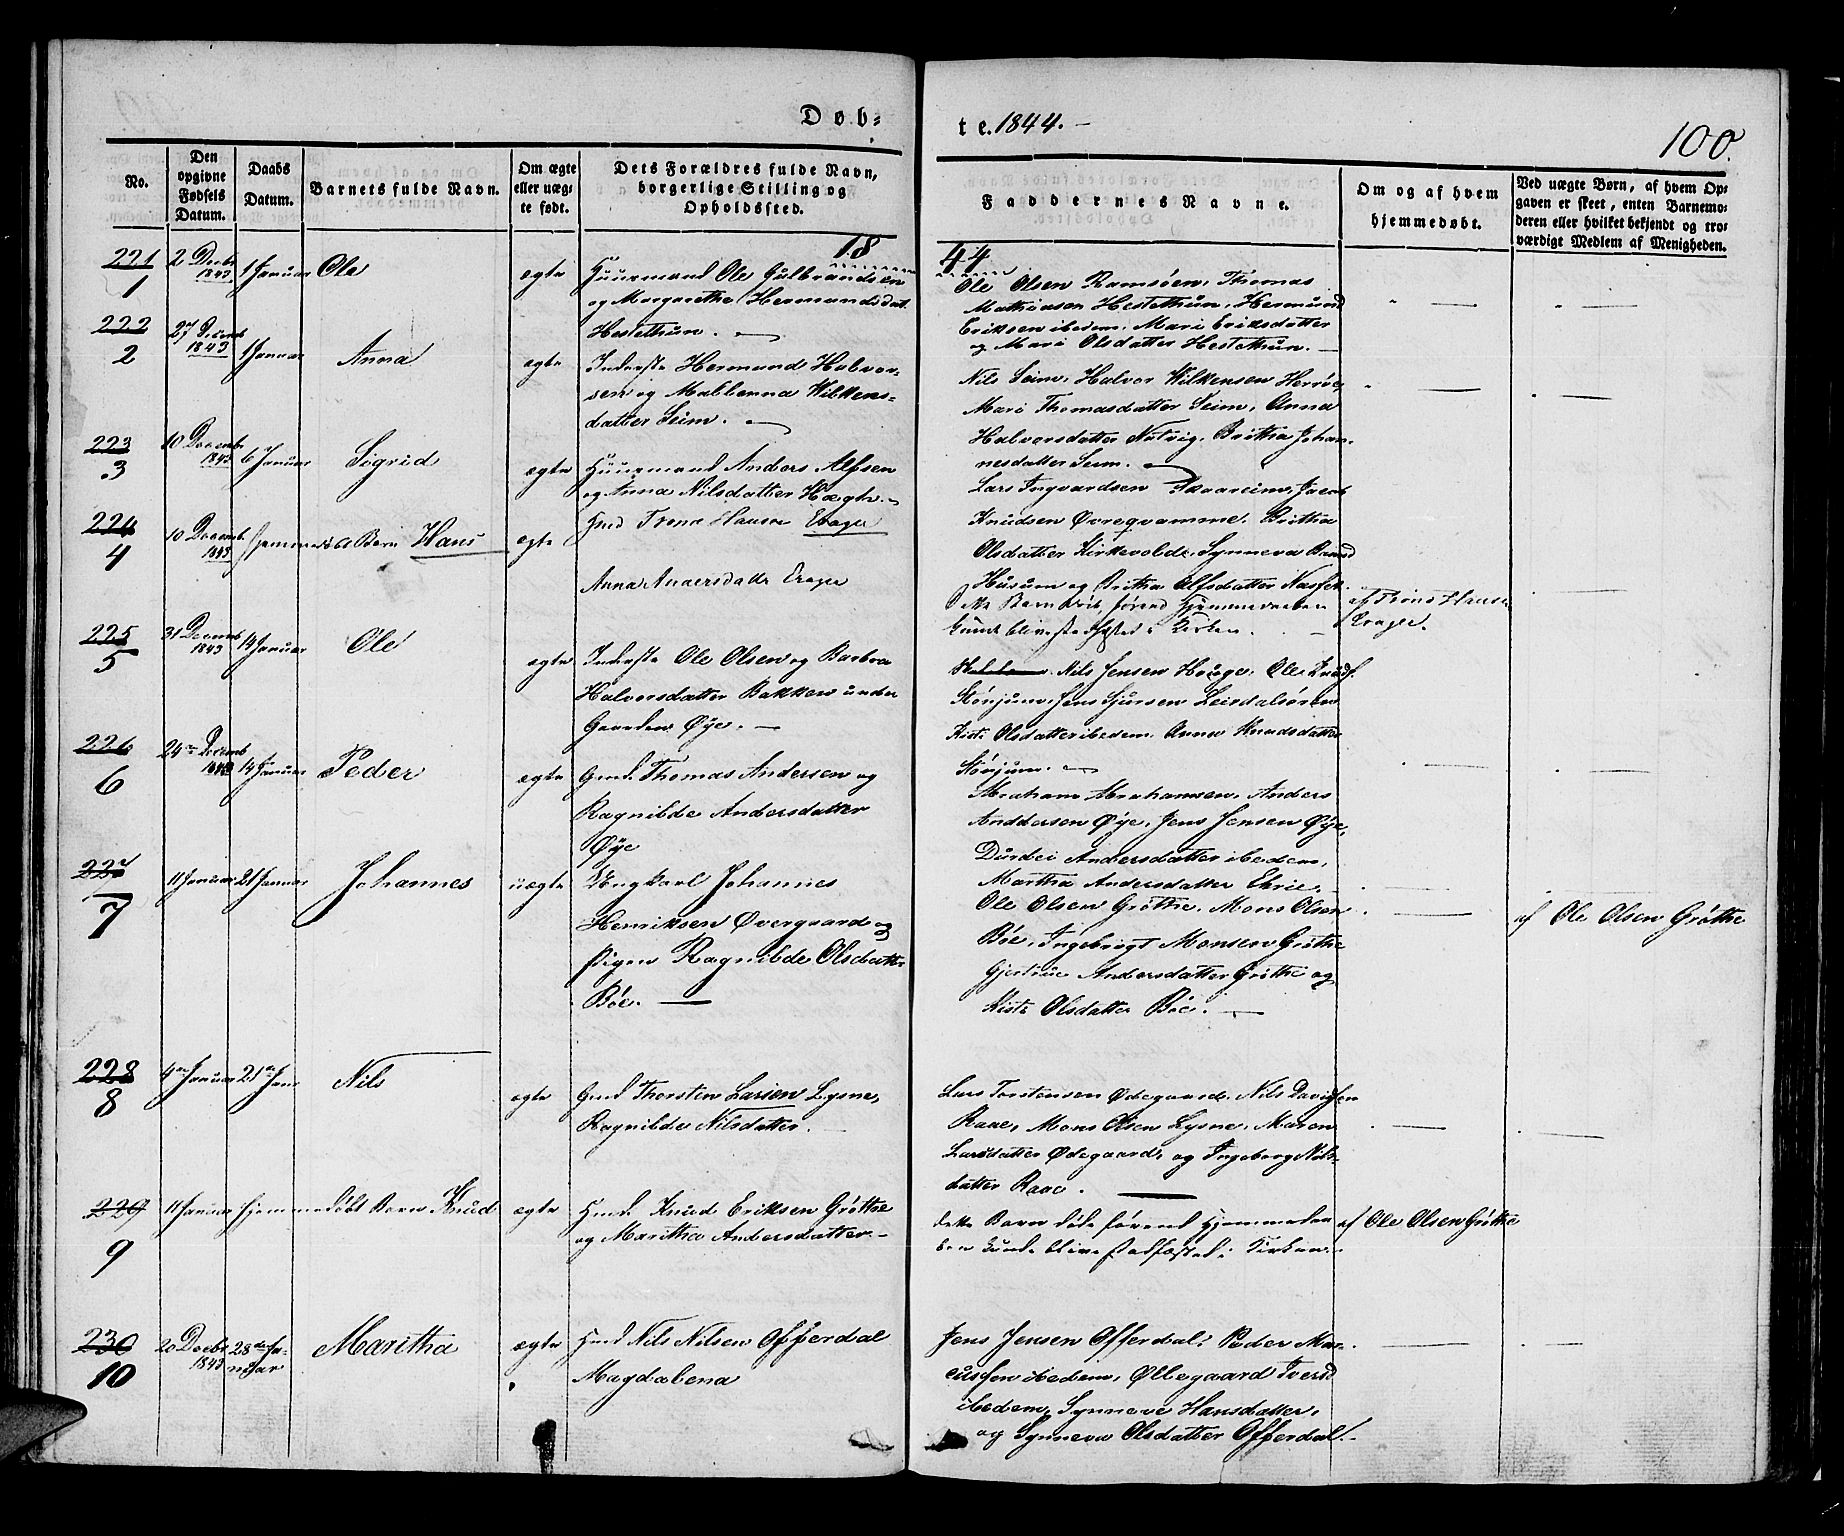 Døb-
te. 1844. -
100.
No.
Den
opgivne
Fødsels
Datum.
Daabs
Datum.
Barnets fulde Navn.
Om ægte
eller uæg-
te født.
Dets Forældres fulde Navn,
borgerlige Stilling og
Opholdssted.
Faddernes Navne.
Om og af hvem
hjemmedøbt.
Ved uægte Børn, af hvem Op-
gaven er skeet, enten Barnemo-
deren eller hvilket bekjendt og tro-
værdigt Medlem af Menigheden.
18
44
221
1
2 Decbr
1843
1 Januar
Ole
ægte
Huusmand Ole Gulbrandsen
og Margaretha Hermundsdat
Hestethun.
Ole Olsen Ramsöen, Thomas
Mathiasen Hestethun, Hermund
Eriksen ibedem, Mari Eriksdatter
og Mari Olsdatter Hestethun.
222
2
27 Decemb
1843
1 Januar
Anna
ægte
Inderste Hermund Halvor-
sen og Mallenna Wilkens-
datter Seim.
Nils Seim, Halvor Wilkensen Herröe,
Mari Thomasdatter Seim, Anna
Halvorsdatter Natvig, Brittha Johan-
nesdatter Seim.
223
3
10 Decembr
1843
6 Januar
Sigrid
ægte
Huusmand Anders Alfsen
og Anna Nilsdatter Hægh.
Lars Ingvardsen Skaareim, Jacob
Knudsen Øvreqvamme, Brittha
Olsdatter Kirkevolde, Synneva
Husum og Brittha Alfsdatter
224
4
10 Decemb
1843
Hjemmedöbt Barn Hans
ægte
Gmd Trond Hansen Erager
Anna Andersdatr Erager
Barn förend Hjemmedaaben
kunde blive stadfæsted i Kirken.
af Trond Hansen
Erager.
225
5
31 Decemb
1843
14 Januar
Ole
ægte
Inderste Ole Olsen og Barbra
Halvorsdatter Bakken under
Gaarden Øye.
Nils Jensen Houge, Ole Knuds.
Stönjum, Jens Sjursen Leirdalsören
Kisti Olsdatter ibedem, Anna Knudsdatter
Stönjum.
226
6
24 Decemb
1843
14 Januar
Peder
ægte
Gmd. Thomas Andersen og
Ragnilde Andersdatter
Øye
Abraham Abrahamsen, Anders
Anddersen Øye, Jens Jensen Øye,
Durdei Andersdatter ibedem,
Martha Andersdatter Ehrie.
227
7
11 Januar
21 Januar
Johannes
uægte
Ungkarl Johannes
Henriksen Øvergaard og
Pigen Ragnilde Olsdatter
Böe.
Ole Olsen Gröthe, Mons Olsen
Böe, Ingebrigt Monsen Gröthe
Gjertrue Andersdatter Gröthe og
Kisti Olsdatter Böe.
af Ole Olsen Gröthe
228
8
4de Januar
21de Jan
Nils
ægte
Gmd Thorsten Larsen Lysne,
Ragnilde Nilsdatter.
Lars Torstensen Ødegaard, Nils Davidsen
Raae, Mons Olsen Lysne, Maren
Larsdatter Ødegaard, og Ingeborg Nils-
datter Raae.
229
9
11 Januar
Hjemmedöbt Barn Knud
ægte
Hmd. Knud Eriksen Gröthe
og Marittha Andersdatter
dette Barn döde förend Hjemmedaa
ben kunde blive stadfæsted i Kirken.
af Ole Olsen Gröthe
230
10
20 Decbr
1843
28de Ja-
nuar
Marittha
ægte
Hmd Nils Nilsen Offerdal
Magdalena
Jens Jensen Offerdal, Peder Mar-
cussen ibedem, Øllegaard Iversd
ibedem, Synneve Hansdatter,
og Synneva Olsdatter Offerdal.